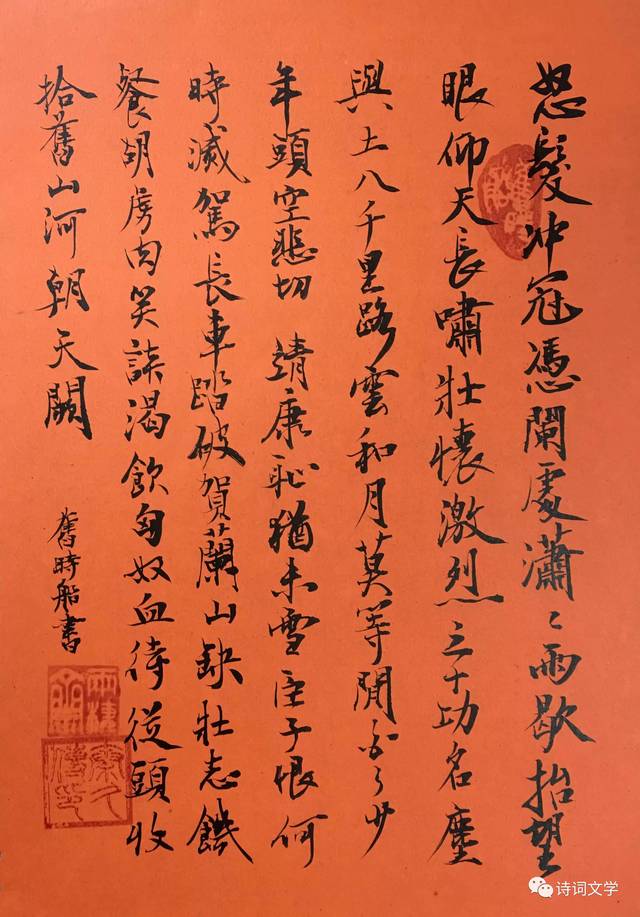 怒髮冲冠憑闌處瀟〻雨歇抬望
眼仰天長嘯壯懷激烈三十功名塵
與土八千里路雲和月莫等閒白了少
年頭空悲切 靖康恥猶未雪臣子恨何
時滅駕長車踏破賀蘭山缺壯志饑
餐胡虜肉笑談渴飲匈奴血待從頭收
拾舊山河朝天闕
舊時船書
诗词文学